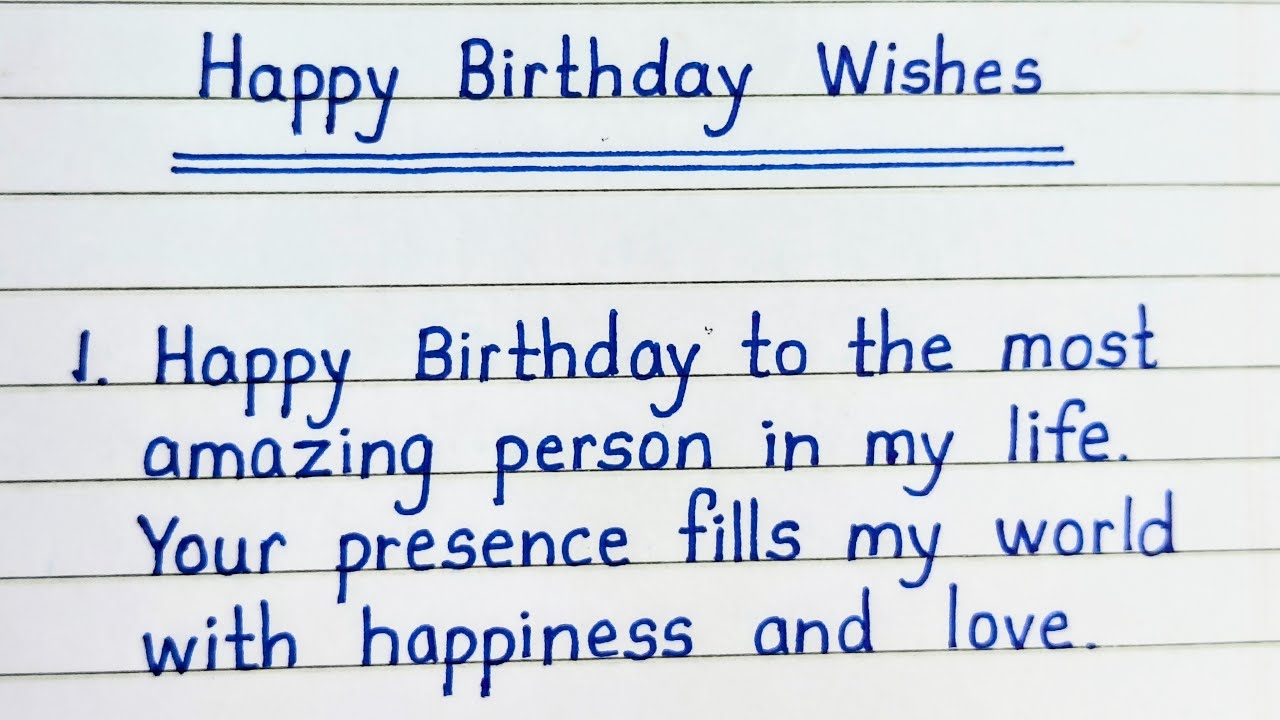 Happy Birthday Wishes
1. Happy Birthday to the most
amazing person in my life.
Your presence fills my world
with happiness and love.